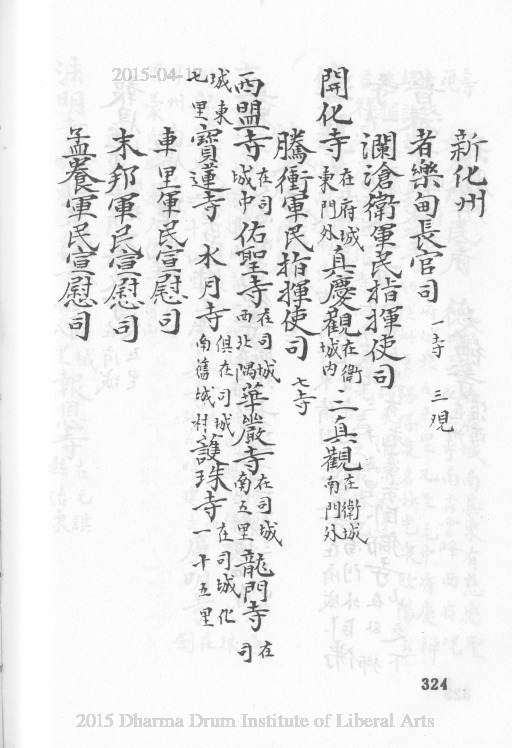 2015-04-17
新化州
者樂甸長官司
瀾滄衛軍民指揮使司 一寺 三观
開化寺 在府城東門外 真慶觀 在衛城内 三真觀 在衛城南門外
騰衝軍民指揮使司 七寺
西盟寺 在司城中 佑聖寺 在司城西北隅 華嚴寺 在司城南五里 龍門寺 在司
城東七里 寶蓮寺 水月寺 俱在司城南舊城村 護珠寺 在司城化一十五里
車里軍民宣慰司
末邦軍民宣慰司
孟養軍民宣慰司
324
2015 Dharma Drum Institute of Liberal Arts